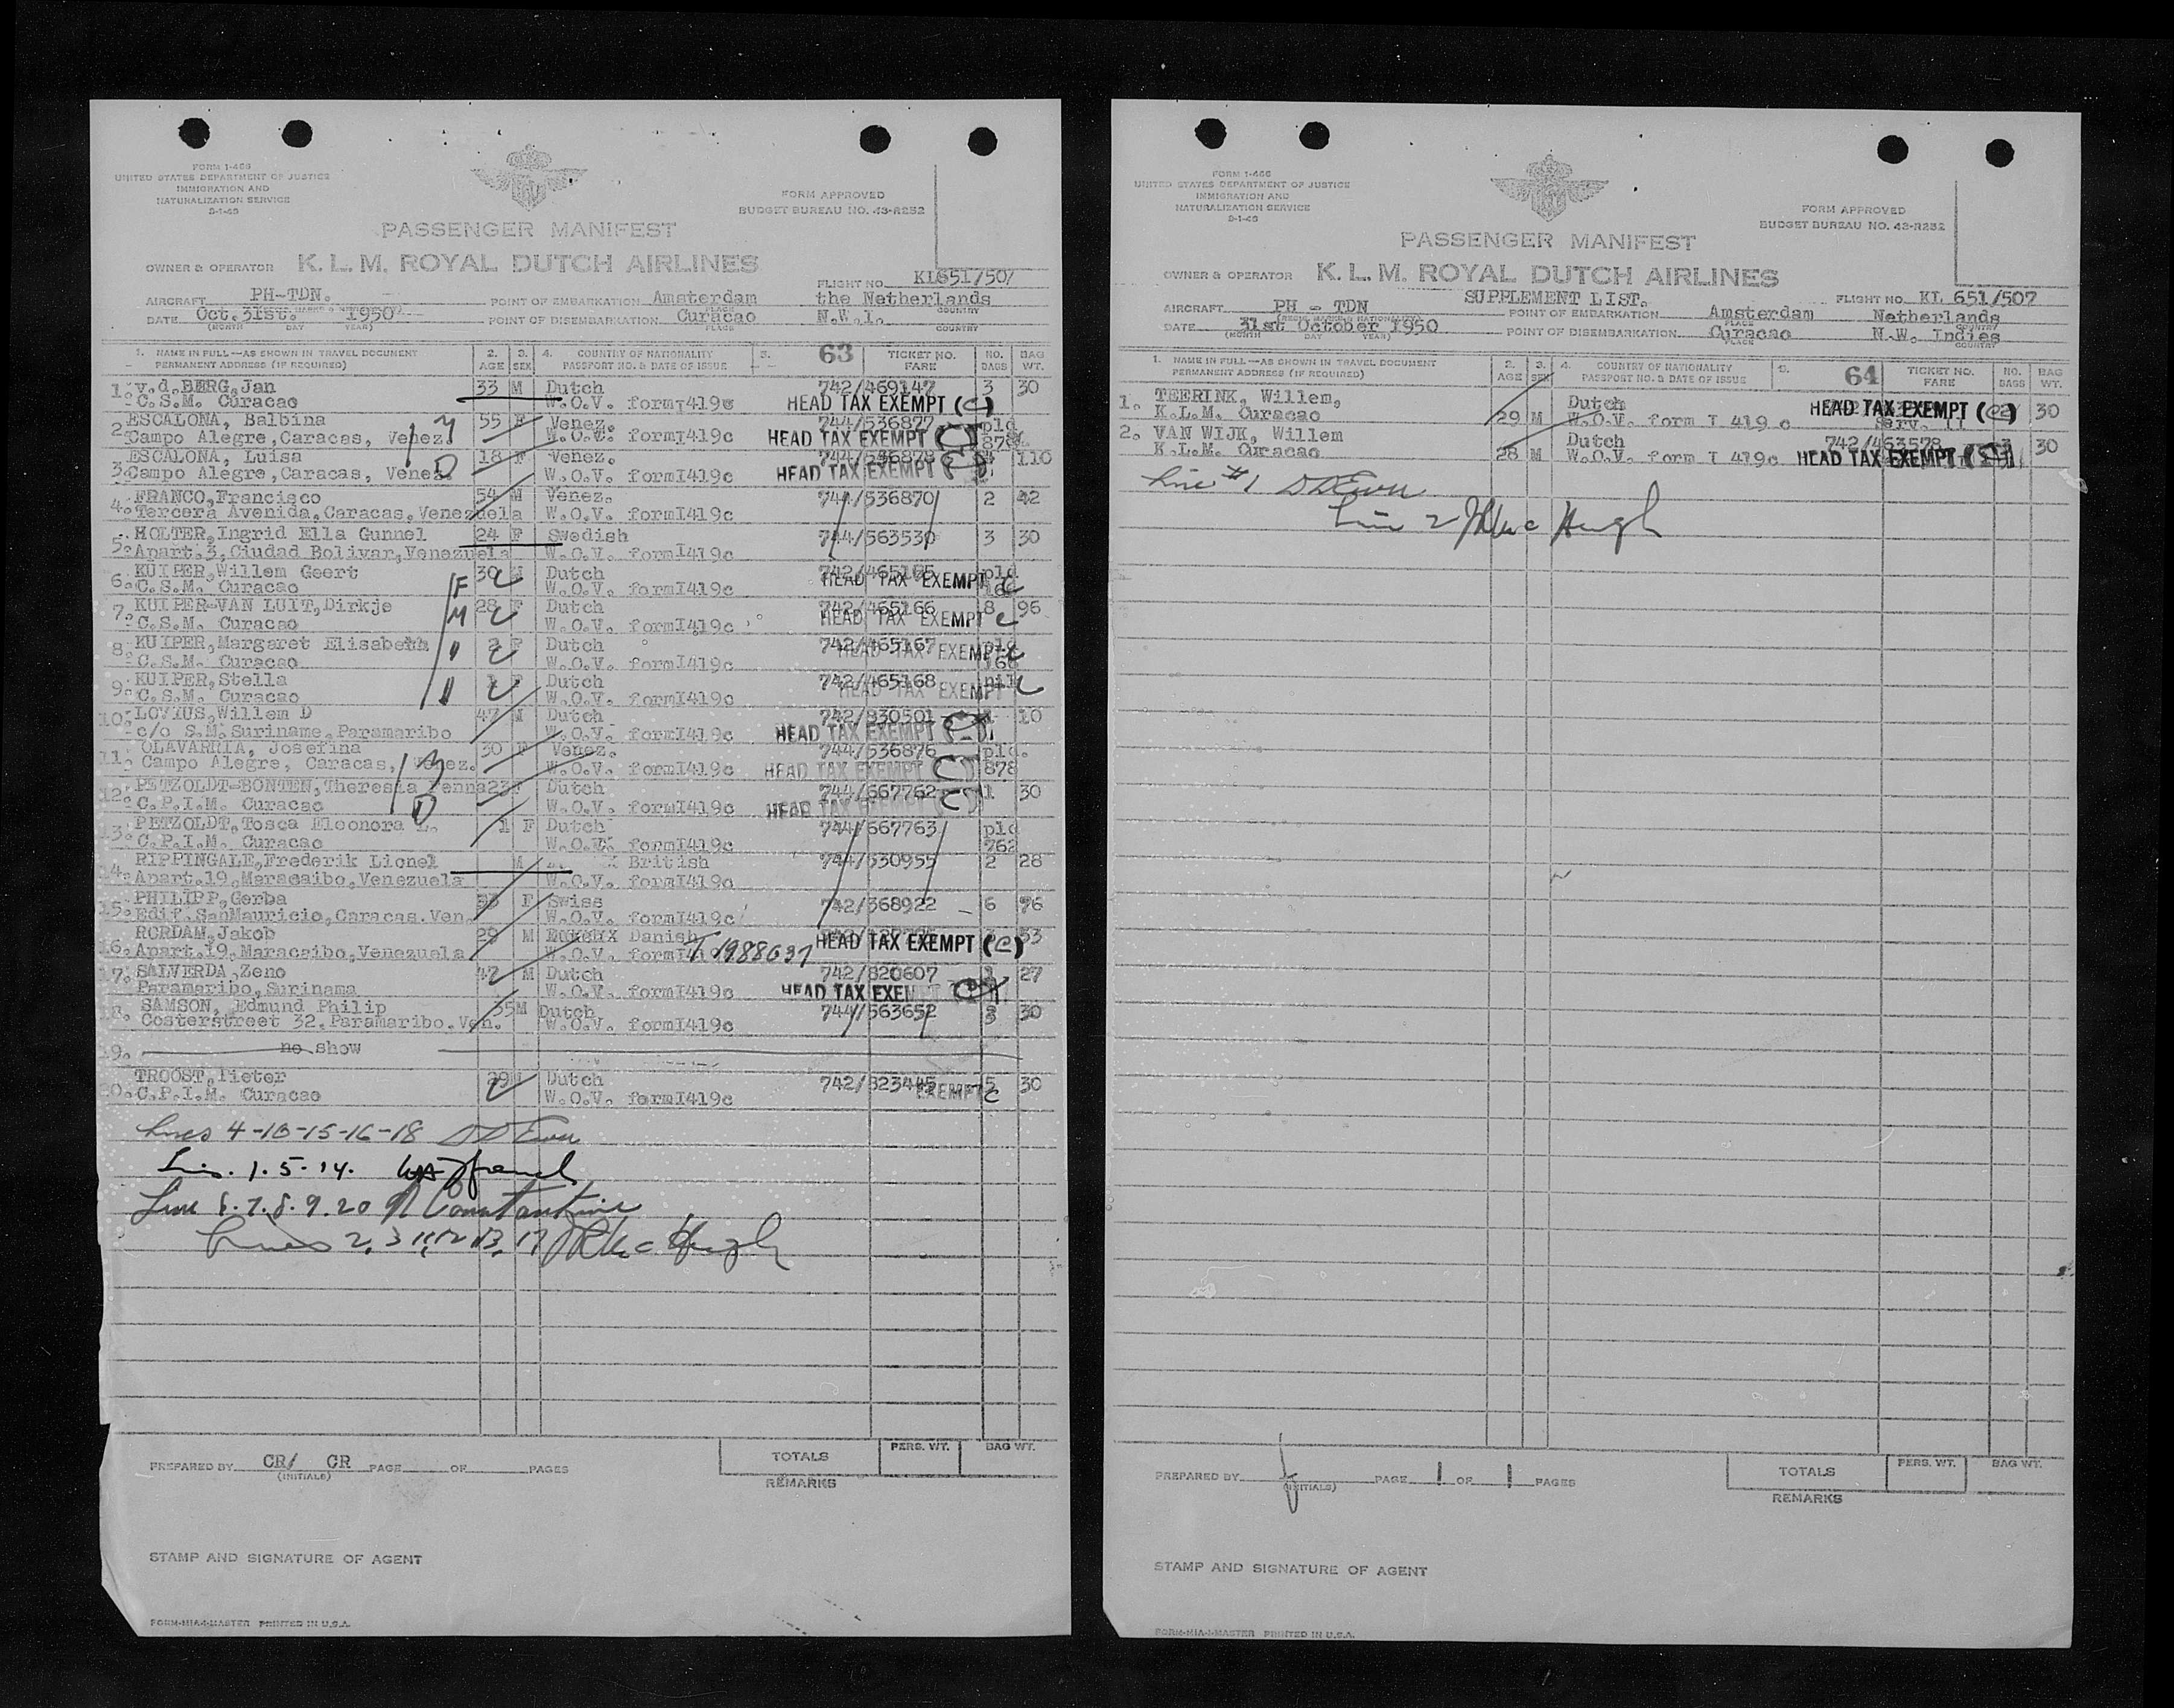 FORM I-466
UNITED STATES DEPARTMENT OF JUSTICE
IMMIGRATION AND
NATURALIZATION SERVICE
FORM APPROVED
BUDGET BUREAU NO. 43-R252
PASSENGER MANIFEST
OWNER & OPERATOR K.L.M. ROYAL DUTCH AIRLINES
FLIGHT NO. KL651/507
AIRCRAFT PH-TDN. POINT OF EMBARKATION Amsterdam the Netherlands
DATE Oct. 31st. 1950 POINT OF DISEMBARKATION Curacao N.W.I.
(MONTH DAY YEAR) PLACE COUNTRY
1. NAME IN FULL—AS SHOWN IN TRAVEL DOCUMENT 2. 3. 4. COUNTRY OF NATIONALITY 5. 63 TICKET NO. NO. BAG
PERMANENT ADDRESS (IF REQUIRED) AGE SEX PASSPORT NO. & DATE OF ISSUE FARE BAGS WT.
1. v.d. BERG, Jan 33 M Dutch 742/469147 3 30
C.S.M. Curacao W.O.V. form I419c HEAD TAX EXEMPT (C)
2. ESCALONA, Balbina 55 F Venez. 744/536877 pld
Campo Alegre, Caracas, Venez. W.O.V. form I419c HEAD TAX EXEMPT 878
3. ESCALONA, Luisa 18 F Venez. 744/536878 110
Campo Alegre, Caracas, Venez. W.O.V. form I419c HEAD TAX EXEMPT
4. FRANCO, Francisco 54 M Venez. 744/536870 2 42
Tercera Avenida, Caracas, Venezuela W.O.V. form I419c
5. HOLTER, Ingrid Ella Gunnel 24 F Swedish 744/563530 3 30
Apart. 3, Ciudad Bolivar, Venezuela W.O.V. form I419c
6. KUIPER, Willem Geert 30 M Dutch 742/465165 pld
C.S.M. Curacao W.O.V. form I419c HEAD TAX EXEMPT C
7. KUIPER-VAN LUIT, Dirkje 28 F Dutch 742/465166 8 96
C.S.M. Curacao W.O.V. form I419c HEAD TAX EXEMPT C
8. KUIPER, Margaret Elisabeth 2 F Dutch 742/465167 pld
C.S.M. Curacao W.O.V. form I419c HEAD TAX EXEMPT C 166
9. KUIPER, Stella 1 F Dutch 742/465168 nil
C.S.M. Curacao W.O.V. form I419c HEAD TAX EXEMPT C
10. LOVIUS, Willem D 47 M Dutch 742/830501 1 10
c/o S.M. Suriname, Paramaribo W.O.V. form I419c HEAD TAX EXEMPT
11. OLAVARRIA, Josefina 30 F Venez. 744/536876 pld.
Campo Alegre, Caracas, Venez. W.O.V. form I419c HEAD TAX EXEMPT 878
12. PETZOLDT-BONTEN, Theresia Fenna 23 F Dutch 744/667762 1 30
C.P.I.M. Curacao W.O.V. form I419c HEAD TAX EXEMPT
13. PETZOLDT, Tosca Eleonora L. 1 F Dutch 744/667763 pld
C.P.I.M. Curacao W.O.V. form I419c 762
14. RIPPINGALE, Frederik Lionel M British 744/530955 2 28
Apart. 19, Maracaibo, Venezuela W.O.V. form I419c
15. PHILIPP, Gerba F Swiss 742/368922 6 76
Edif. SanMauricio, Caracas. Ven. W.O.V. form I419c
16. RORDAM, Jakob 29 M Danish 53
Apart. 19, Maracaibo, Venezuela W.O.V. form I419c T 1988637 HEAD TAX EXEMPT (C)
17. SALVERDA, Zeno 42 M Dutch 742/820607 1 27
Paramaribo, Surinama W.O.V. form I419c HEAD TAX EXEMPT
18. SAMSON, Edmund Philip 35 M Dutch 744/563652 3 30
Costerstreet 32, Paramaribo. Ven. W.O.V. form I419c
19. no show
20. TROOST, Pieter 29 M Dutch 742/823445 5 30
C.P.I.M. Curacao W.O.V. form I419c EXEMPT C
Lines 4-10-15-16-18
Lin. 1. 5. 14.
Line 6. 7. 8. 9. 20 Constantine
Lines 2, 3 11, 12 13, 17 McHugh
PREPARED BY CR/ GR PAGE OF PAGES
(INITIALS)
TOTALS PERS. WT. BAG WT.
REMARKS
STAMP AND SIGNATURE OF AGENT
FORM-MIA-I-MASTER PRINTED IN U.S.A.
FORM I-466
UNITED STATES DEPARTMENT OF JUSTICE
IMMIGRATION AND
NATURALIZATION SERVICE
FORM APPROVED
BUDGET BUREAU NO. 43-R252
PASSENGER MANIFEST
OWNER & OPERATOR K.L.M. ROYAL DUTCH AIRLINES
SUPPLEMENT LIST. FLIGHT NO. KL 651/507
AIRCRAFT PH - TDN POINT OF EMBARKATION Amsterdam Netherlands
DATE 31st October 1950 POINT OF DISEMBARKATION Curacao N.W. Indies
(MONTH DAY YEAR) PLACE COUNTRY
1. NAME IN FULL—AS SHOWN IN TRAVEL DOCUMENT 2. 3. 4. COUNTRY OF NATIONALITY 5. 64 TICKET NO. NO. BAG
PERMANENT ADDRESS (IF REQUIRED) AGE SEX PASSPORT NO. & DATE OF ISSUE FARE BAGS WT.
1. TEERINK, Willem, 29 M Dutch HEAD TAX EXEMPT (C) 30
K.L.M. Curacao W.O.V. form I 419 c Serv.
2. VAN WIJK, Willem 28 M Dutch 742/463578 30
K.L.M. Curacao W.O.V. form I 419c HEAD TAX EXEMPT
Line #1
Line 2 McHugh
PREPARED BY PAGE 1 OF 1 PAGES
(INITIALS)
TOTALS PERS. WT. BAG WT.
REMARKS
STAMP AND SIGNATURE OF AGENT
FORM-MIA-I-MASTER PRINTED IN U.S.A.